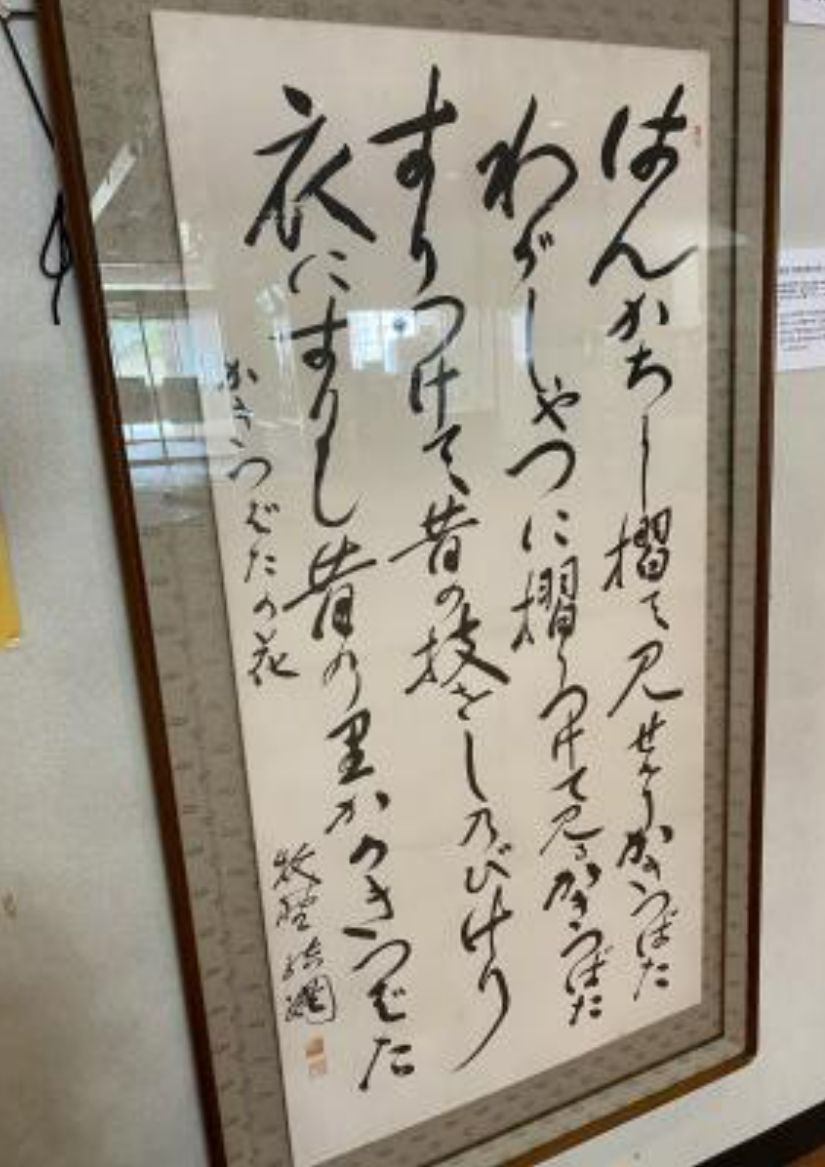 はんかちに摺て見せけりかきつばた
わがしやつに摺りつけて見るかきつばた
すりつけて昔の技をし乃びけり
衣にすりし昔の里かかきつばた
かきつばたの花
牧野結網